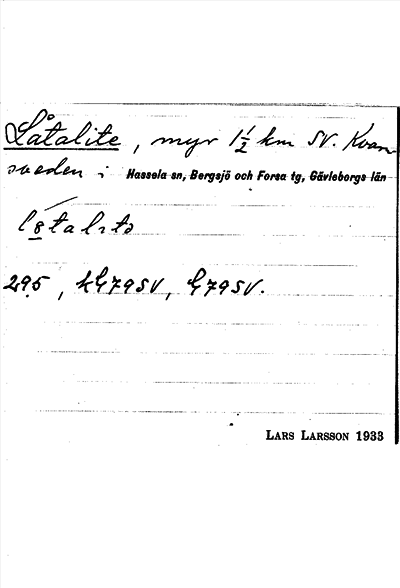 Låtalite, myr 1½ km SV. Kvarn-
sveden i Hassela sn, Bergsjö och Forsa tg, Gävleborgs län
295, kG79SV, G79SV.
LARS LARSSON 1933